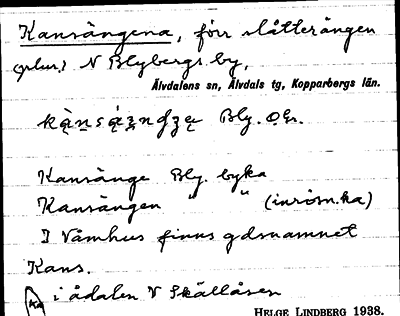 Kansängena, förr slåtterängen
(plur.) N Blybergs by,
Älvdalens sn, Älvdals tg, Kopparbergs län.
Bly. o.
Kansänge Bly. byka
Kansängen " " (inröm.ka)
I Våmhus finns gdsnamnet
Kans.
i ådalen V Skällåsen
HELGE LINDBERG 1938.